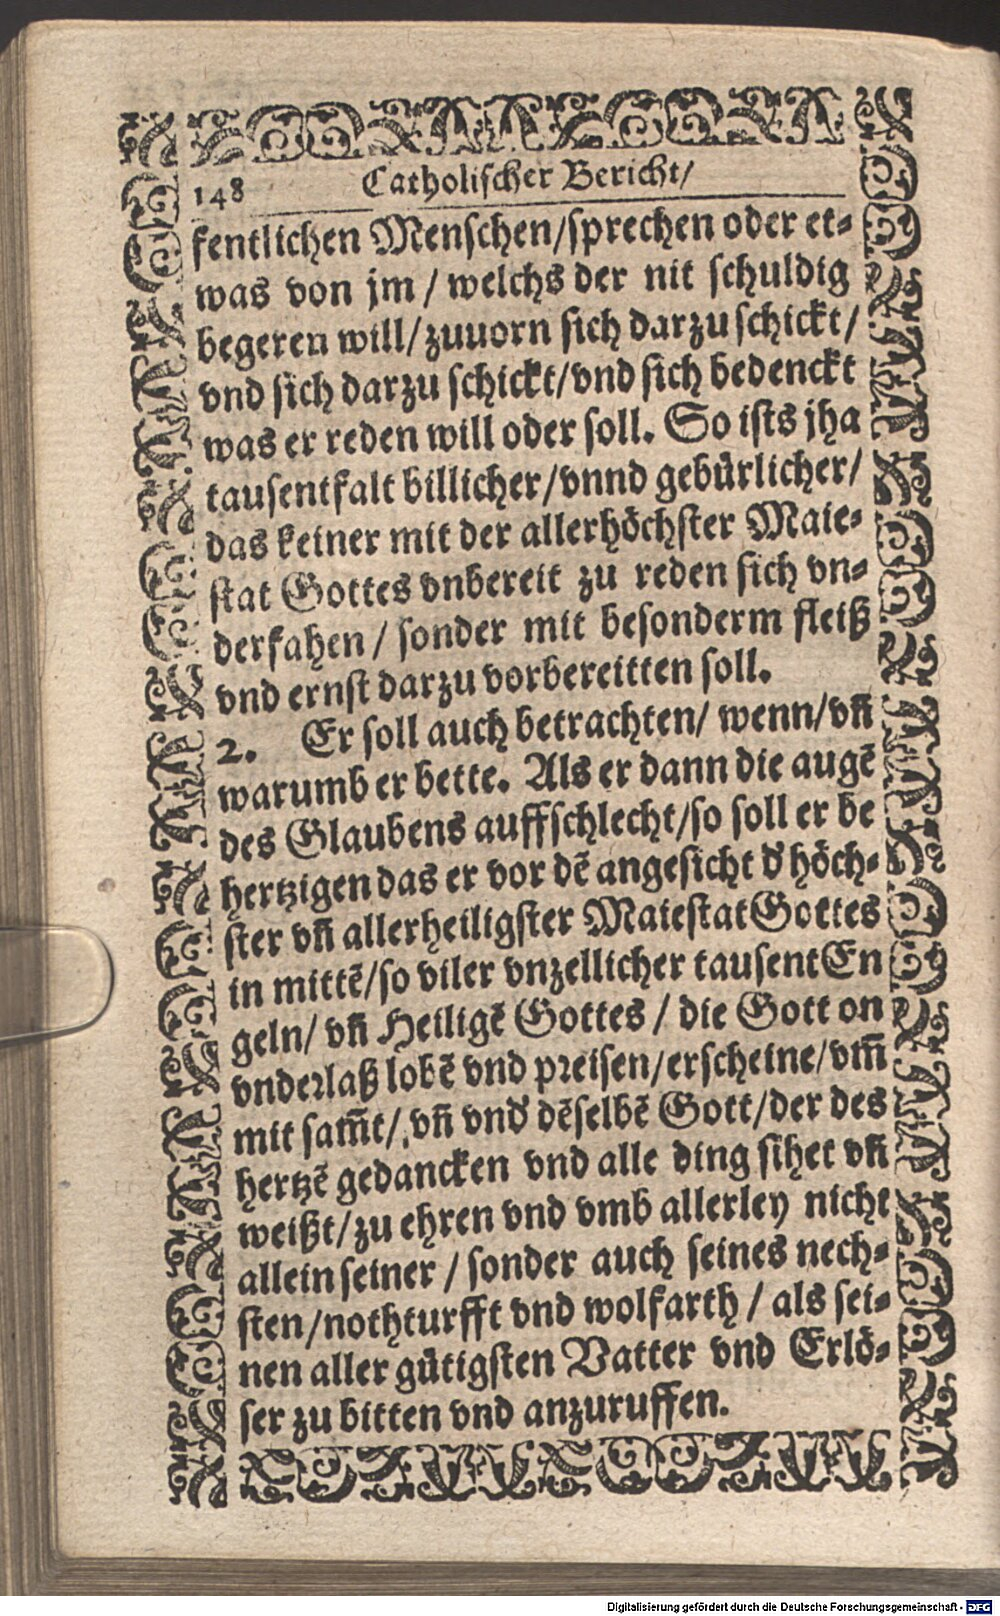 148 Catholischer Bericht/
fentlichen Menschen/sprechen oder et⸗
was von jm / welchs der nit schuldig
begeren will/zuuorn sich darzu schickt/
vnd sich darzu schickt/vnd sich bedenckt
was er reden will oder soll. So ists jha
tausentfalt billicher/vnnd gebürlicher/
das keiner mit der allerhöchster Maie⸗
stat Gottes vnbereit zu reden sich vn⸗
derfahen / sonder mit besonderm fleiß
vnd ernst darzu vorbereitten soll.
2. Er soll auch betrachten/ wenn/vñ
warumb er bette. Als er dann die augẽ
des Glaubens auffschlecht/so soll er be
hertzigen das er vor dẽ angesicht d' höch⸗
ster vñ allerheiligster Maiestat Gottes
in mittẽ/so viler vnzellicher tausent En
geln/ vñ Heiligẽ Gottes / die Gott on
vnderlaß lobẽ vnd preisen/erscheine/vm̃
mit sam̃t/ vñ vnd' dẽselbẽ Gott/der des
hertzẽ gedancken vnd alle ding sihet vñ
weißt/zu ehren vnd vmb allerley nicht
allein seiner / sonder auch seines nech⸗
sten/nothturfft vnd wolfarth / als sei⸗
nen aller gütigsten Vatter vnd Erlö⸗
ser zu bitten vnd anzuruffen.
Digitalisierung gefördert durch die Deutsche Forschungsgemeinschaft - DFG